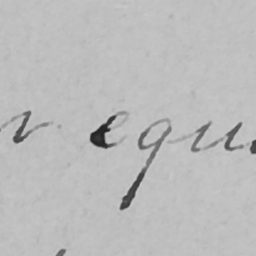 r equ